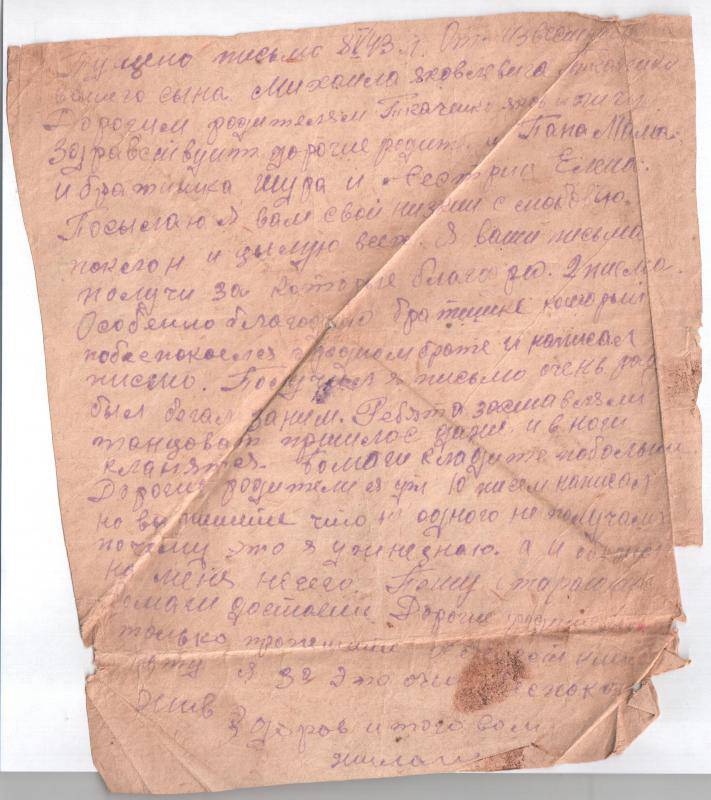 Пущено письмо 8 43 г. От
вашего сына Михаила Яковлевича
Дорогим родителям Ткаченко
Здравствуйт дорогие родит и Папа Мама
и братишка Шура и сестрица Елена.
Посылаю я вам свой низкий с любовью
поклон и цылую всех. Я ваши письма
получи за которые благо рю. 2 писма.
Особенно благо братишке который
побеспокоелся о родном брате и написал
писмо. Получил я письмо очень рад
был бегал заним. Ребята заставляли
танцоват пришлос даже и в ноги
клонятся. Бомаги кладите побольши
Дорогие родители я уж 10 писем написал
но вы пишите что не одного не получали
почему это я уж незнаю. а и
на меня нечего. Пишу стара
бомаги достаеш. Дорогие
только пропишите
я за это оч беспоко
жив здоров и того вам
жилаю